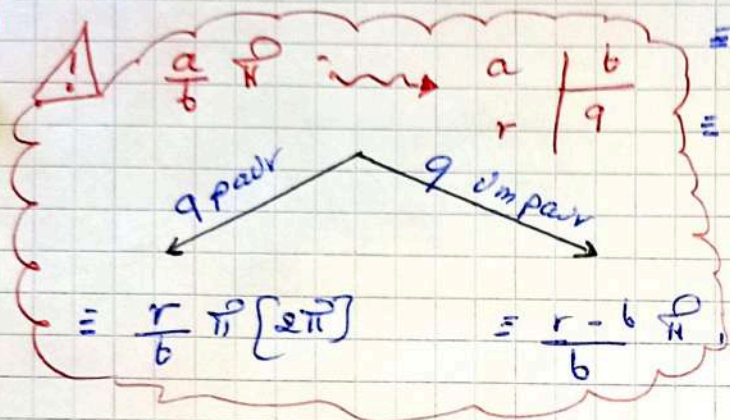 !
a/b π ⇝ a | b
r | q
q pair
q impair
≡ r/b π [2π]
≡ (r - b)/b π
≡
≡